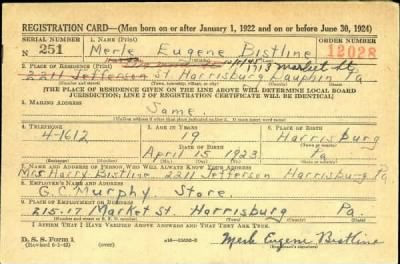 REGISTRATION CARD—(Men born on or after January 1, 1922 and on or before June 30, 1924)
SERIAL NUMBER 1. NAME (Print) ORDER NUMBER
N 251 Merle Eugene Bistline 12028
2. PLACE OF RESIDENCE (Print) Market St
2211 Jefferson St Harrisburg Dauphin Pa
[THE PLACE OF RESIDENCE GIVEN ON THE LINE ABOVE WILL DETERMINE LOCAL BOARD
JURISDICTION; LINE 2 OF REGISTRATION CERTIFICATE WILL BE IDENTICAL]
3. MAILING ADDRESS
Same
4. TELEPHONE 5. AGE IN YEARS 6. PLACE OF BIRTH
4-1612 19 Harrisburg
DATE OF BIRTH
April 15 1923 Pa
7. NAME AND ADDRESS OF PERSON WHO WILL ALWAYS KNOW YOUR ADDRESS
Mrs Harry Bistline 2211 Jefferson Harrisburg Pa
8. EMPLOYER'S NAME AND ADDRESS
G.C. Murphy Store
9. PLACE OF EMPLOYMENT OR BUSINESS
215-17 Market St Harrisburg Pa.
I AFFIRM THAT I HAVE VERIFIED ABOVE ANSWERS AND THAT THEY ARE TRUE.
D. S. S. Form 1 Merle Eugene Bistline